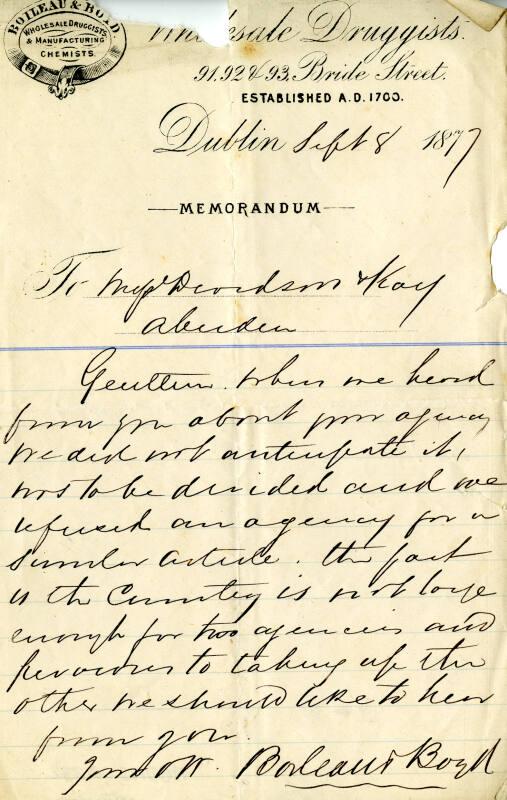 BOILEAU & BOYD.
WHOLESALE DRUGGISTS
& MANUFACTURING
CHEMISTS.
Wholesale Druggists.
91.92 & 93. Bride Street.
ESTABLISHED A.D. 1700.
Dublin Sept 8 1877
MEMORANDUM
To Messrs Davidson & Kay
Aberdeen
Gentlemen. When we heard
from you about your agency
we did not anticipate it,
was to be divided and we
refused an agency for a
similar article. The fact
is the Country is not large
enough for two agencies and
previous to taking up the
other we should like to hear
from you.
Boileau & Boyd